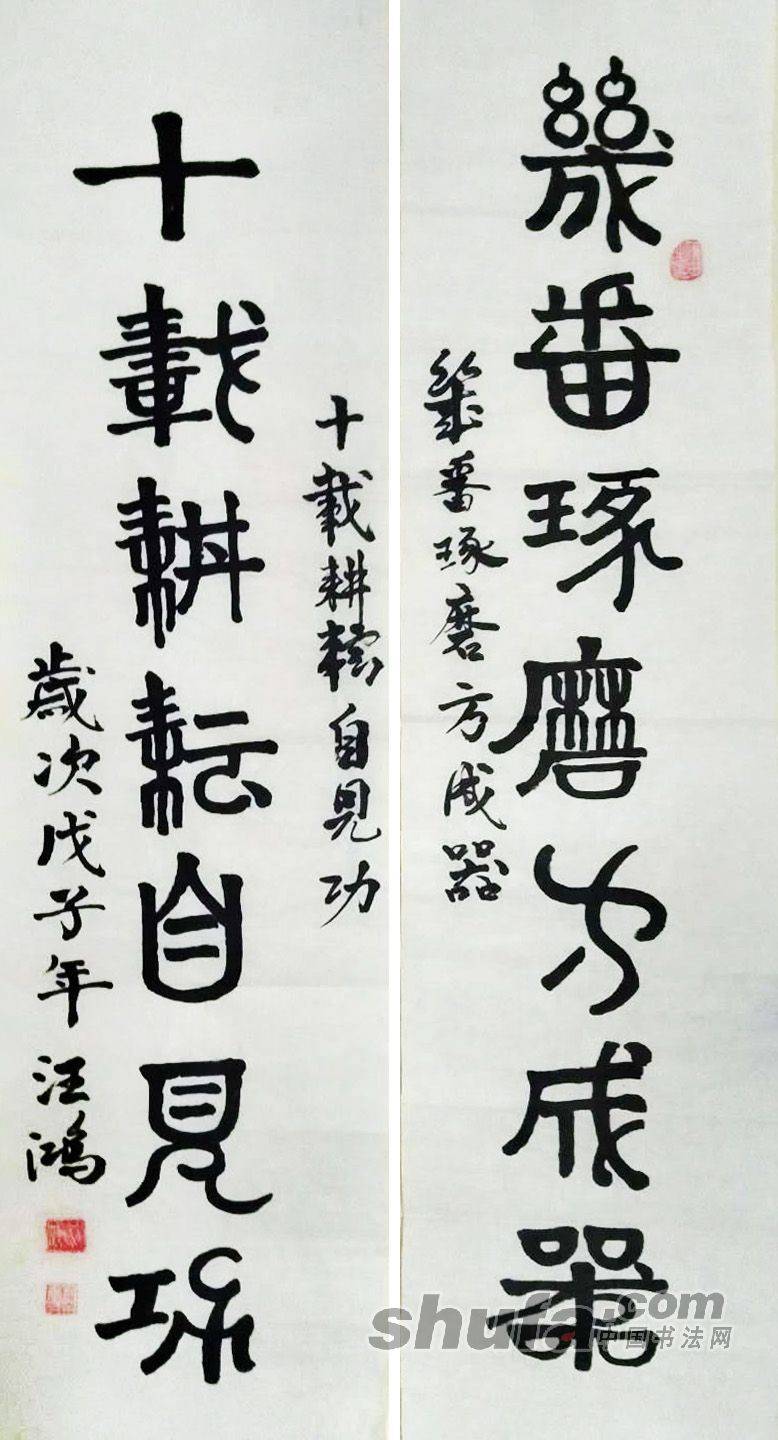 幾番琢磨方成器
幾番琢磨方成器
十載耕耘自見功
十載耕耘自見功
歲次戊子年 汪鴻
shufa.com
中国书法网